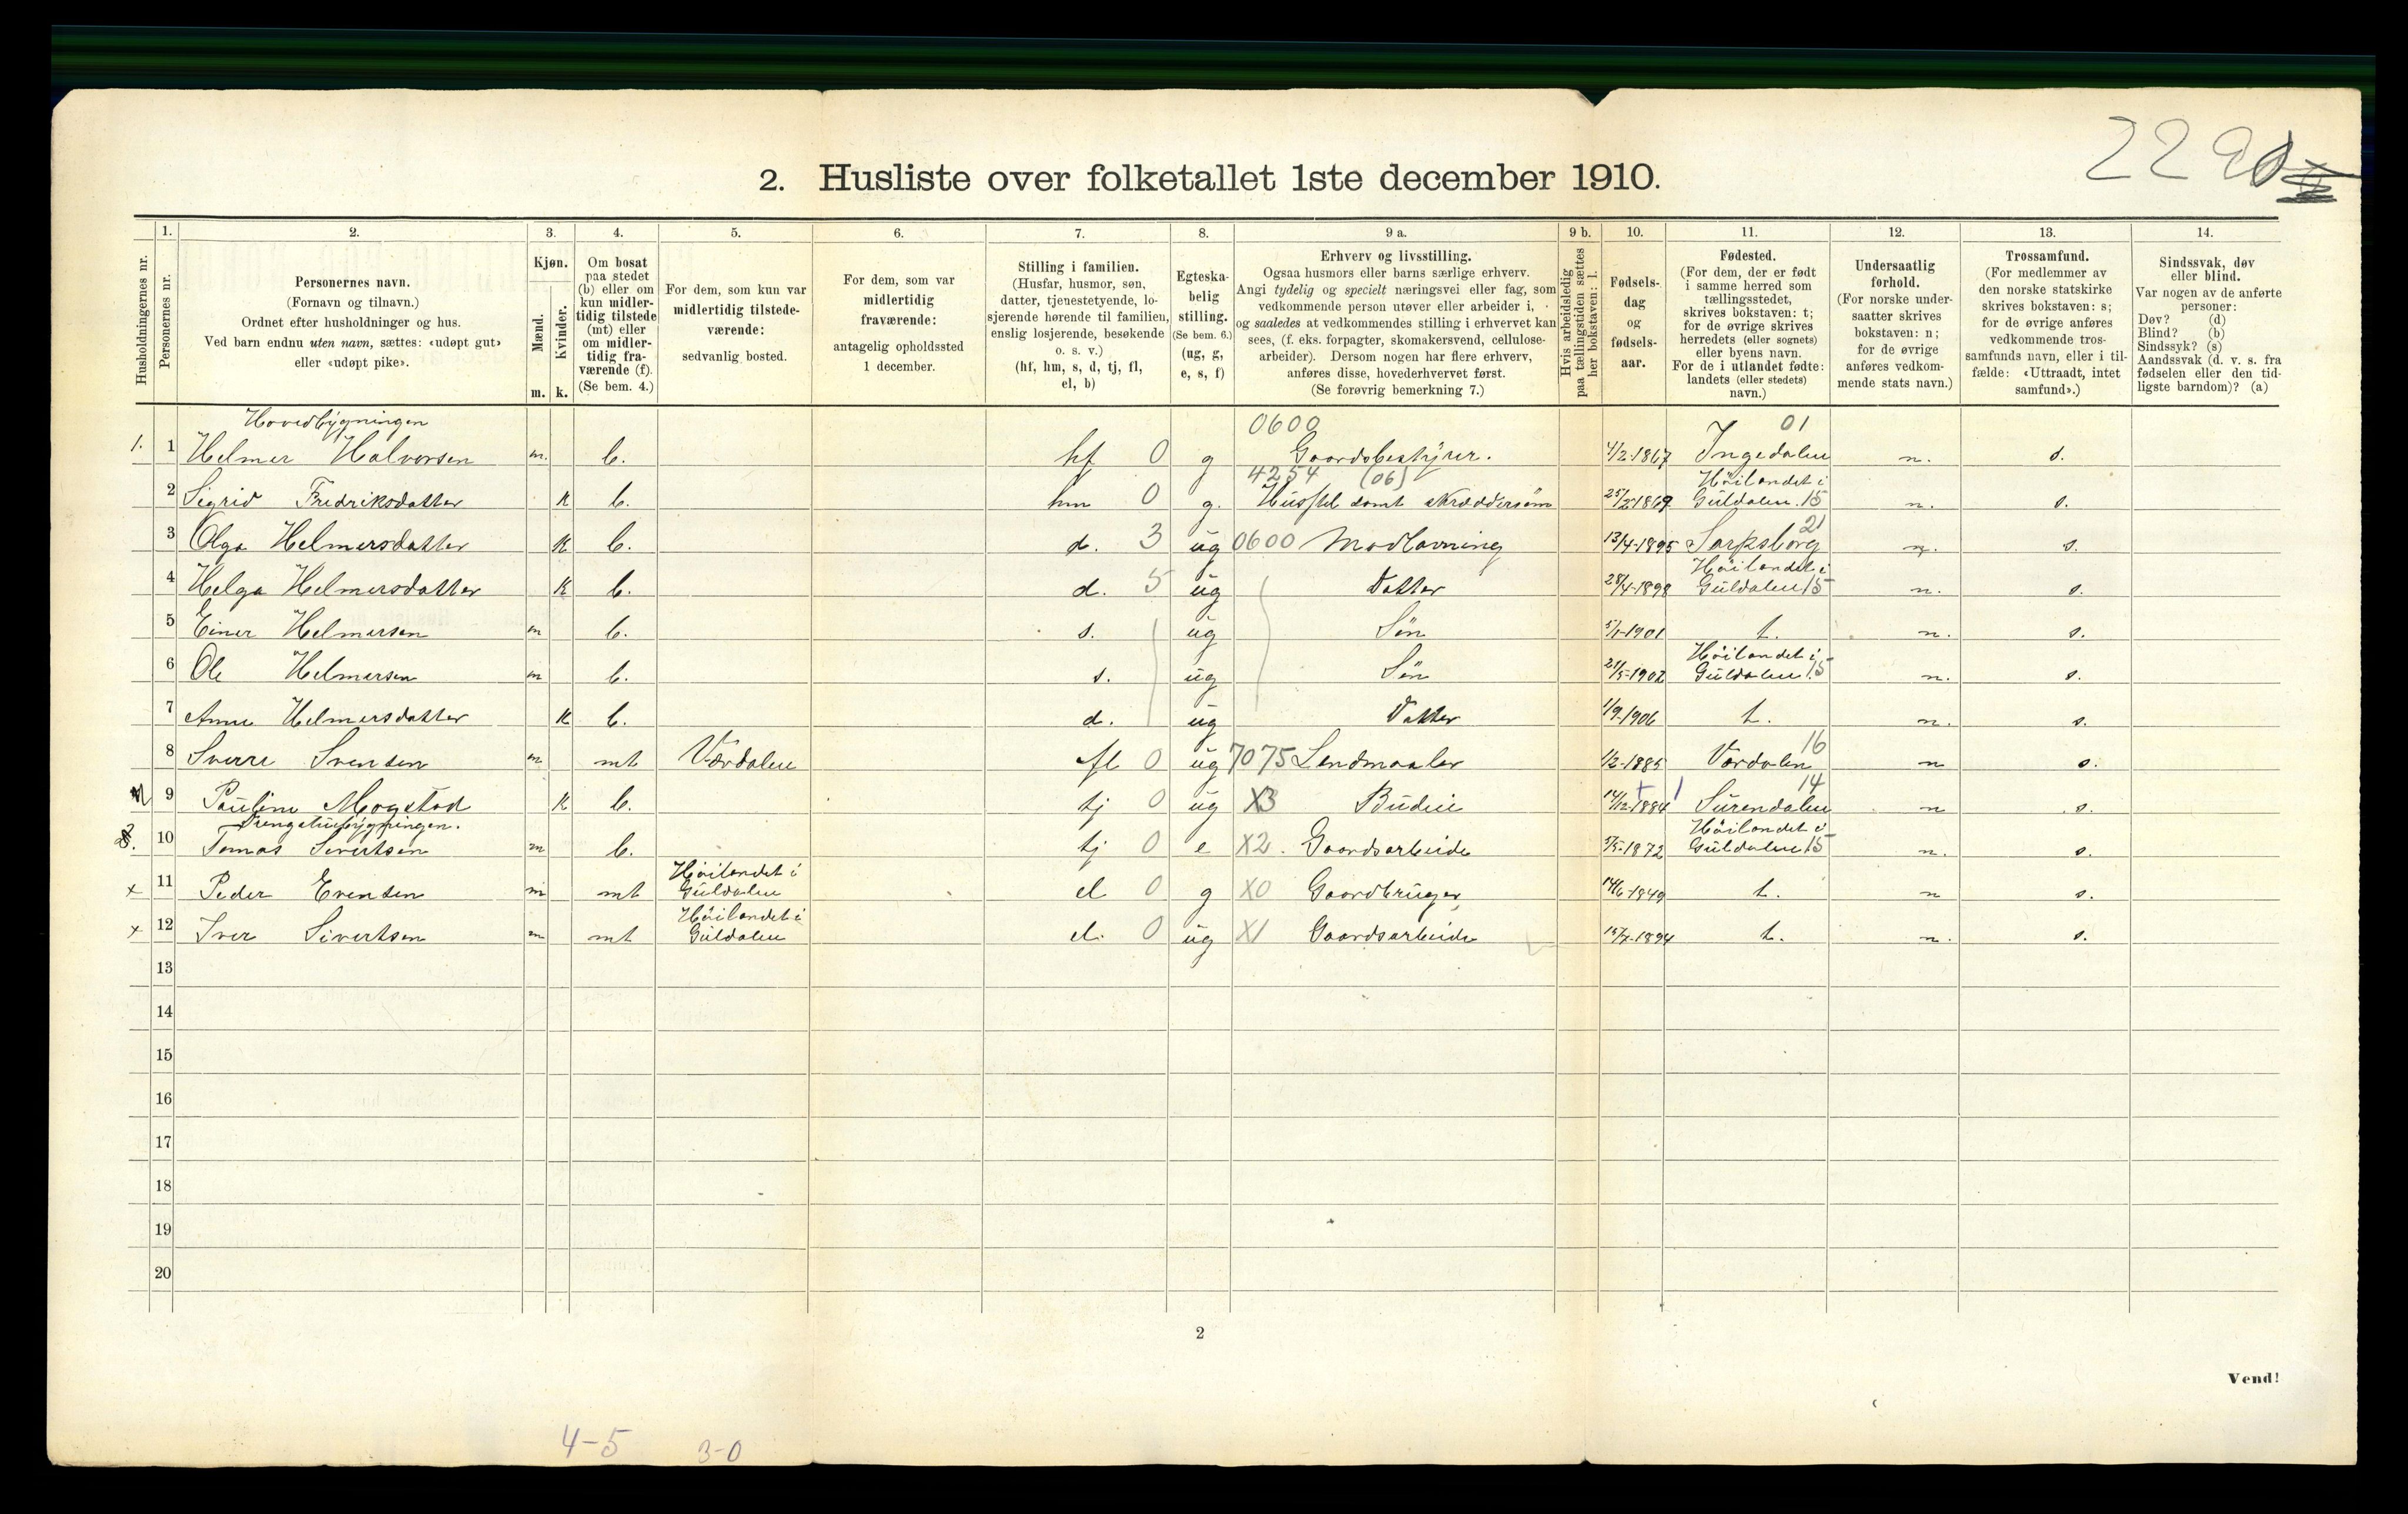 2290
2. Husliste over folketallet 1ste december 1910.
Husholdningernes nr.
1.
Personernes nr.
2.
Personernes navn.
(Fornavn og tilnavn.)
Ordnet efter husholdninger og hus.
Ved barn endnu uten navn, sættes: «udøpt gut»
eller «udøpt pike».
3.
Kjøn.
Mænd.
Kvinder.
m. k.
4.
Om bosat
paa stedet
(b) eller om
kun midler-
tidig tilstede
(mt) eller
om midler-
tidig fra-
værende (f).
(Se bem. 4.)
5.
For dem, som kun var
midlertidig tilstede-
værende:
sedvanlig bosted.
6.
For dem, som var
midlertidig
fraværende:
antagelig opholdssted
1 december.
7.
Stilling i familien.
(Husfar, husmor, søn,
datter, tjenestetyende, lo-
sjerende hørende til familien,
enslig losjerende, besøkende
o. s. v.)
(hf, hm, s, d, tj, fl,
el, b)
8.
Egteska-
belig
stilling.
(Se bem. 6.)
(ug, g,
e, s, f)
9 a.
Erhverv og livsstilling.
Ogsaa husmors eller barns særlige erhverv.
Angi tydelig og specielt næringsvei eller fag, som
vedkommende person utøver eller arbeider i,
og saaledes at vedkommendes stilling i erhvervet kan
sees, (f. eks. forpagter, skomakersvend, cellulose-
arbeider). Dersom nogen har flere erhverv,
anføres disse, hovederhvervet først.
(Se forøvrig bemerkning 7.)
9 b.
Hvis arbeidsledig
paa tællingstiden sættes
her bokstaven: l.
10.
Fødsels-
dag
og
fødsels-
aar.
11.
Fødested.
(For dem, der er født
i samme herred som
tællingsstedet,
skrives bokstaven: t;
for de øvrige skrives
herredets (eller sognets)
eller byens navn.
For de i utlandet fødte:
landets (eller stedets)
navn.)
12.
Undersaatlig
forhold.
(For norske under-
saatter skrives
bokstaven: n;
for de øvrige
anføres vedkom-
mende stats navn.)
13.
Trossamfund.
(For medlemmer av
den norske statskirke
skrives bokstaven: s;
for de øvrige anføres
vedkommende tros-
samfunds navn, eller i til-
fælde: «Uttraadt, intet
samfund».)
14.
Sindssvak, døv
eller blind.
Var nogen av de anførte
personer:
Døv? (d)
Blind? (b)
Sindssyk? (s)
Aandssvak (d. v. s. fra
fødselen eller den tid-
ligste barndom)? (a)
Hovedbygningen 0600 01
1. 1 Helmer Halvorsen m. b. hf 0 g Gaardsbestyrer. 4/2-1867 Ingedalen n. s.
4254 (06) Höilandet i
2 Sigrid Fredriksdatter k b. hm 0 g. Husstel samt skræddersöm 25/2-1869 Guldalen. 15 n. s.
21
3 Olga Helmersdatter k b. d. 3 ug 0600 Madlavning 13/4-1895 Sarpsborg n. s.
Höilandet i
4 Helga Helmersdatter k b. d. 5 ug Datter 28/4-1898 Guldalen 15 n. s.
5 Einer Helmersen m b. s. ug Sön 5/1-1901 t. n. s.
Höilandet i
6 Ole Helmersen m b. s. ug Sön 21/5-1902 Guldalen 15 n. s.
7 Anne Helmersdatter k b. d. ug Datter 1/9-1906 t. n. s.
16
8 Sverre Svensen m mt Værdalen fl 0 ug 7075 Landmaaler 1/2-1885 Værdalen n s.
14
9 Pauline Mogstad k b. tj 0 ug X3 Budeie 14/12-1884 Surendalen n s.
Drengstubygningen. Höilandet i
2. 10 Tomas Sivertsen m b. tj 0 e X2. Gaardsarbeide 5/5-1872 Guldalen 15 n. s.
Höilandet i
x 11 Peder Evensen m mt Guldalen el 0 g X0 Gaardbruger 14/6-1849 t. n s.
Höilandet i
x 12 Iver Sivertsen m mt Guldalen el. 0 ug X1 Gaardsarbeide 15/7-1894 t. n. s.
13
14
15
16
17
18
19
20
2
Vend!
4-5 3-0